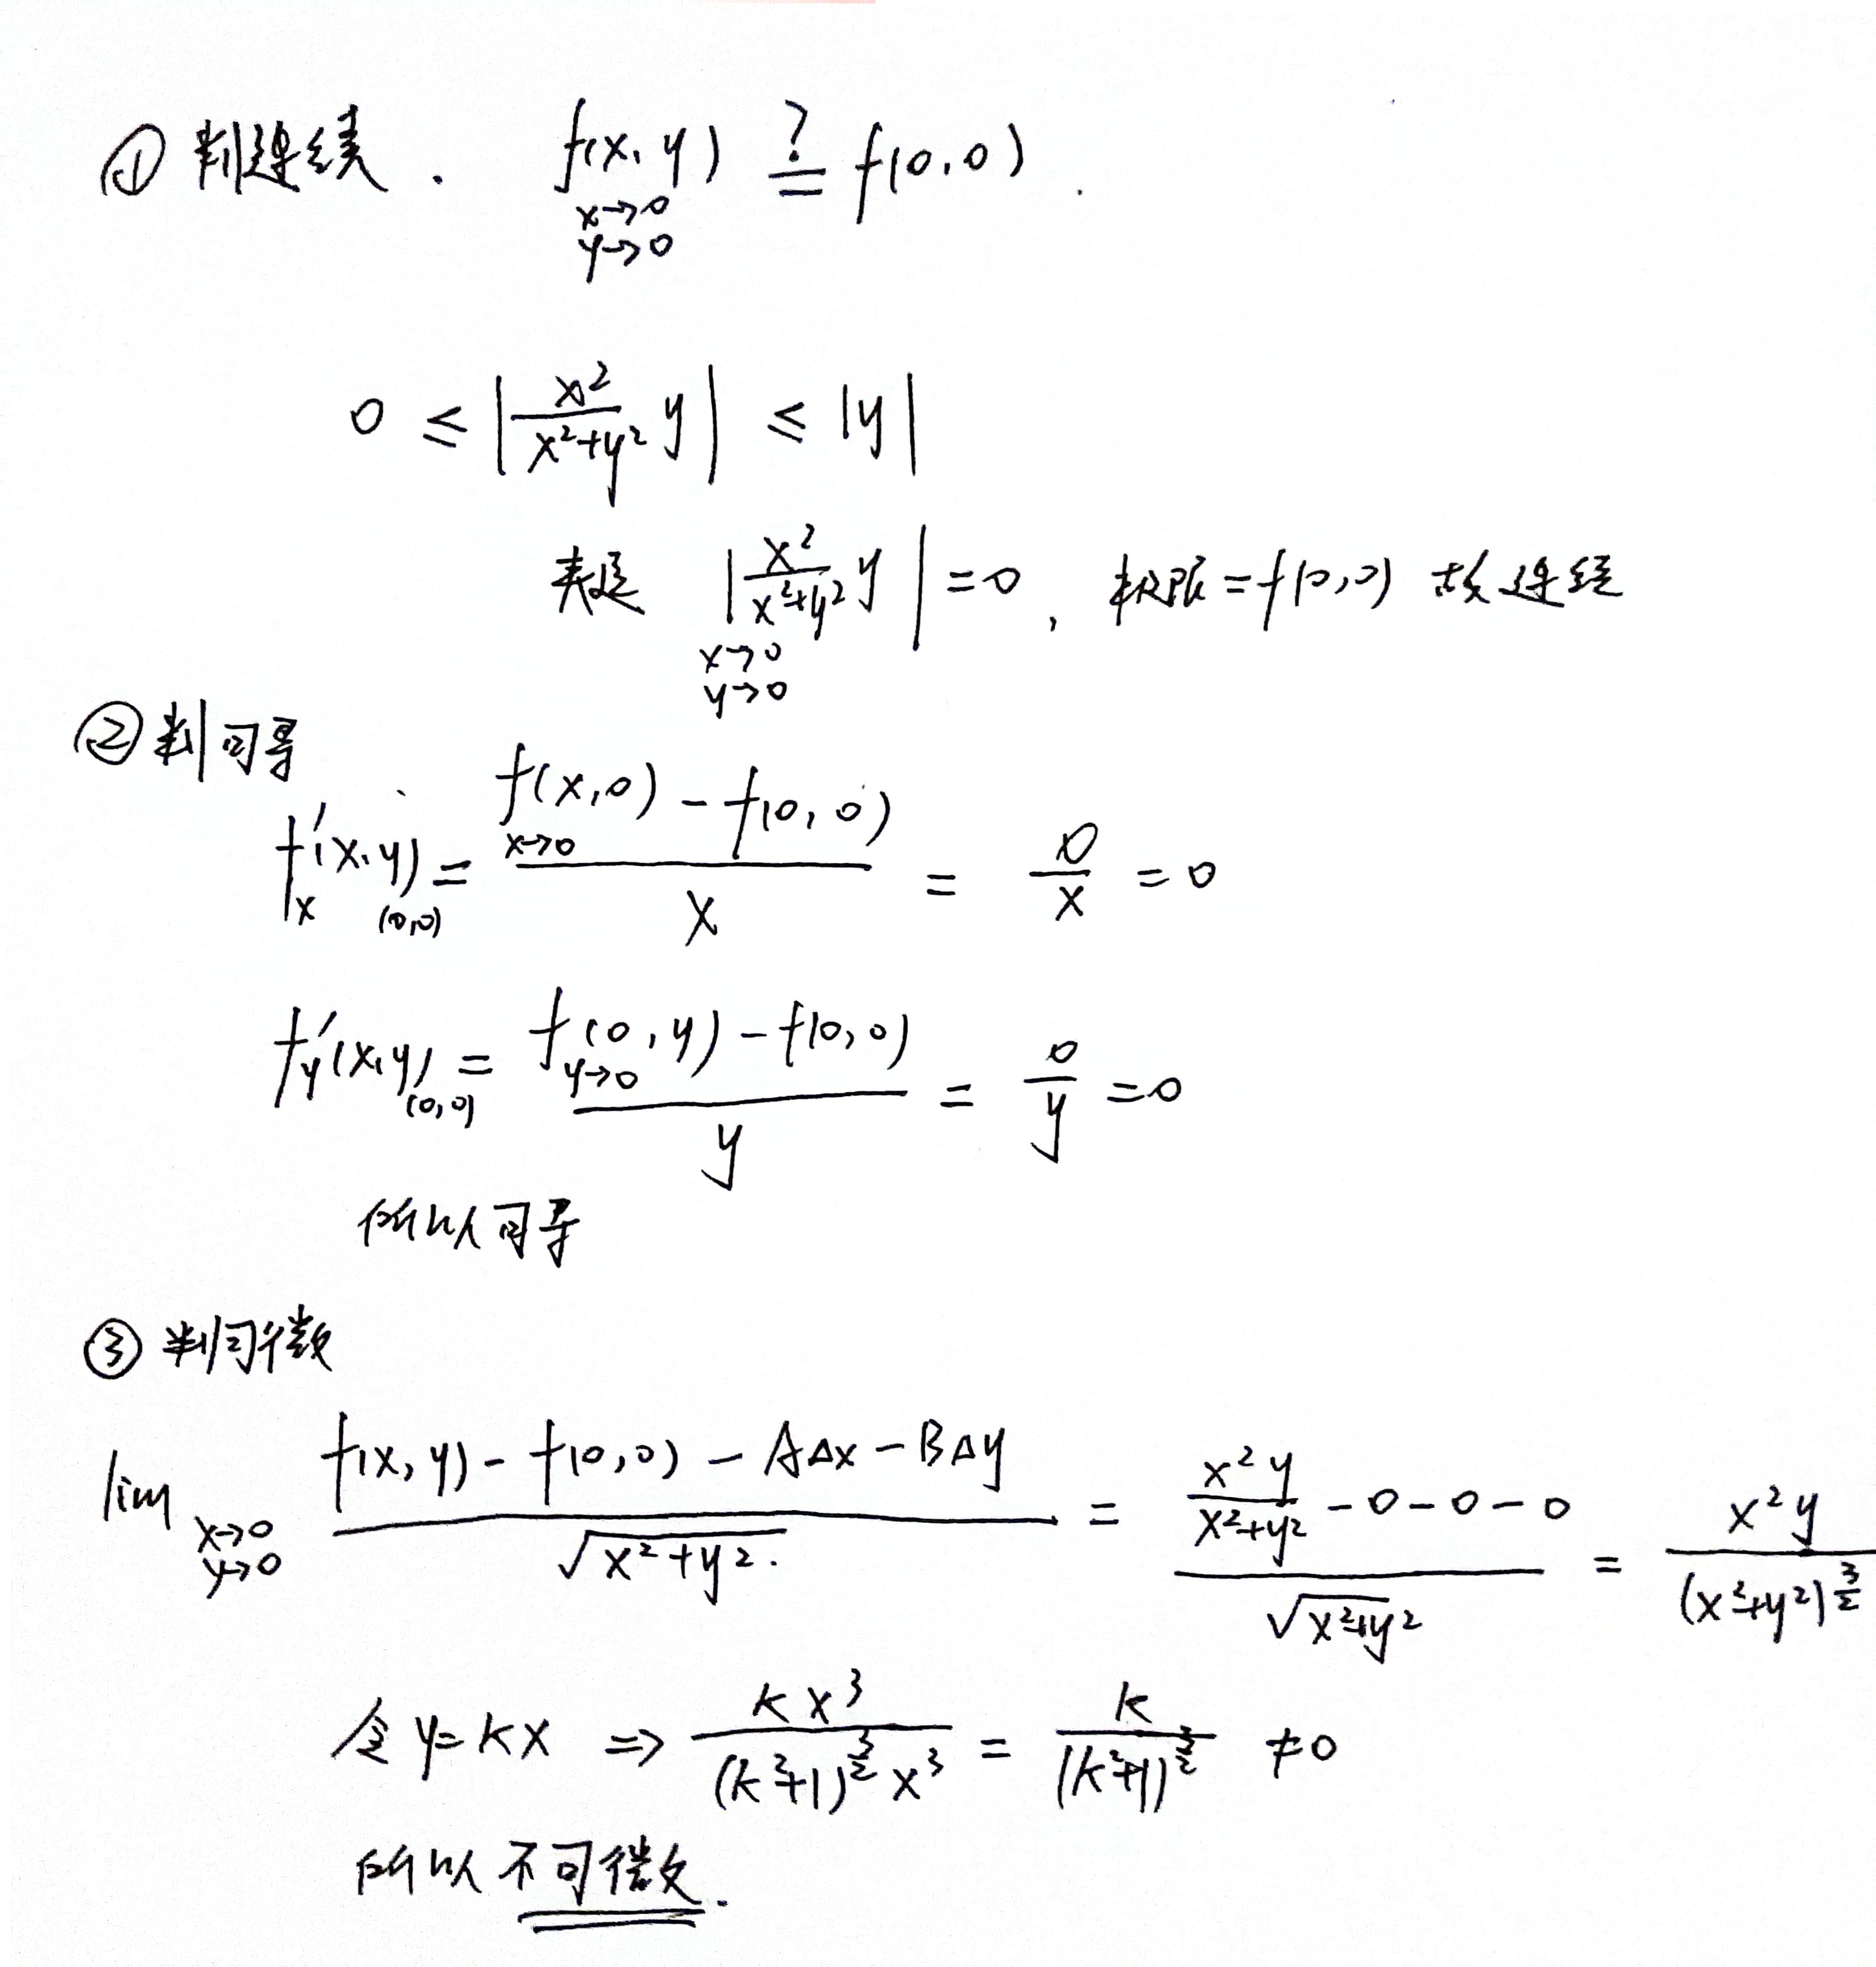 ① 判连续. f(x,y) ?= f(0,0).
x→0
y→0
0 ≤ |x²/(x²+y²) y| ≤ |y|
|x²/(x²+y²) y| = 0, 极限=f(0,0) 故连续
x→0
y→0
② 判可导
f'x(x,y)(0,0) = (f(x,0) - f(0,0))/x = 0/x = 0
x→0
f'y(x,y)(0,0) = (f(0,y) - f(0,0))/y = 0/y = 0
y→0
所以可导
③ 判可微
lim x→0 y→0 (f(x,y) - f(0,0) - AΔx - BΔy)/√(x²+y²) = (x²y/(x²+y²) - 0 - 0 - 0)/√(x²+y²) = x²y/(x²+y²)^(3/2)
令 y=kx ⇒ kx³/((k²+1)^(3/2) x³) = k/(k²+1)^(3/2) ≠0
所以不可微.